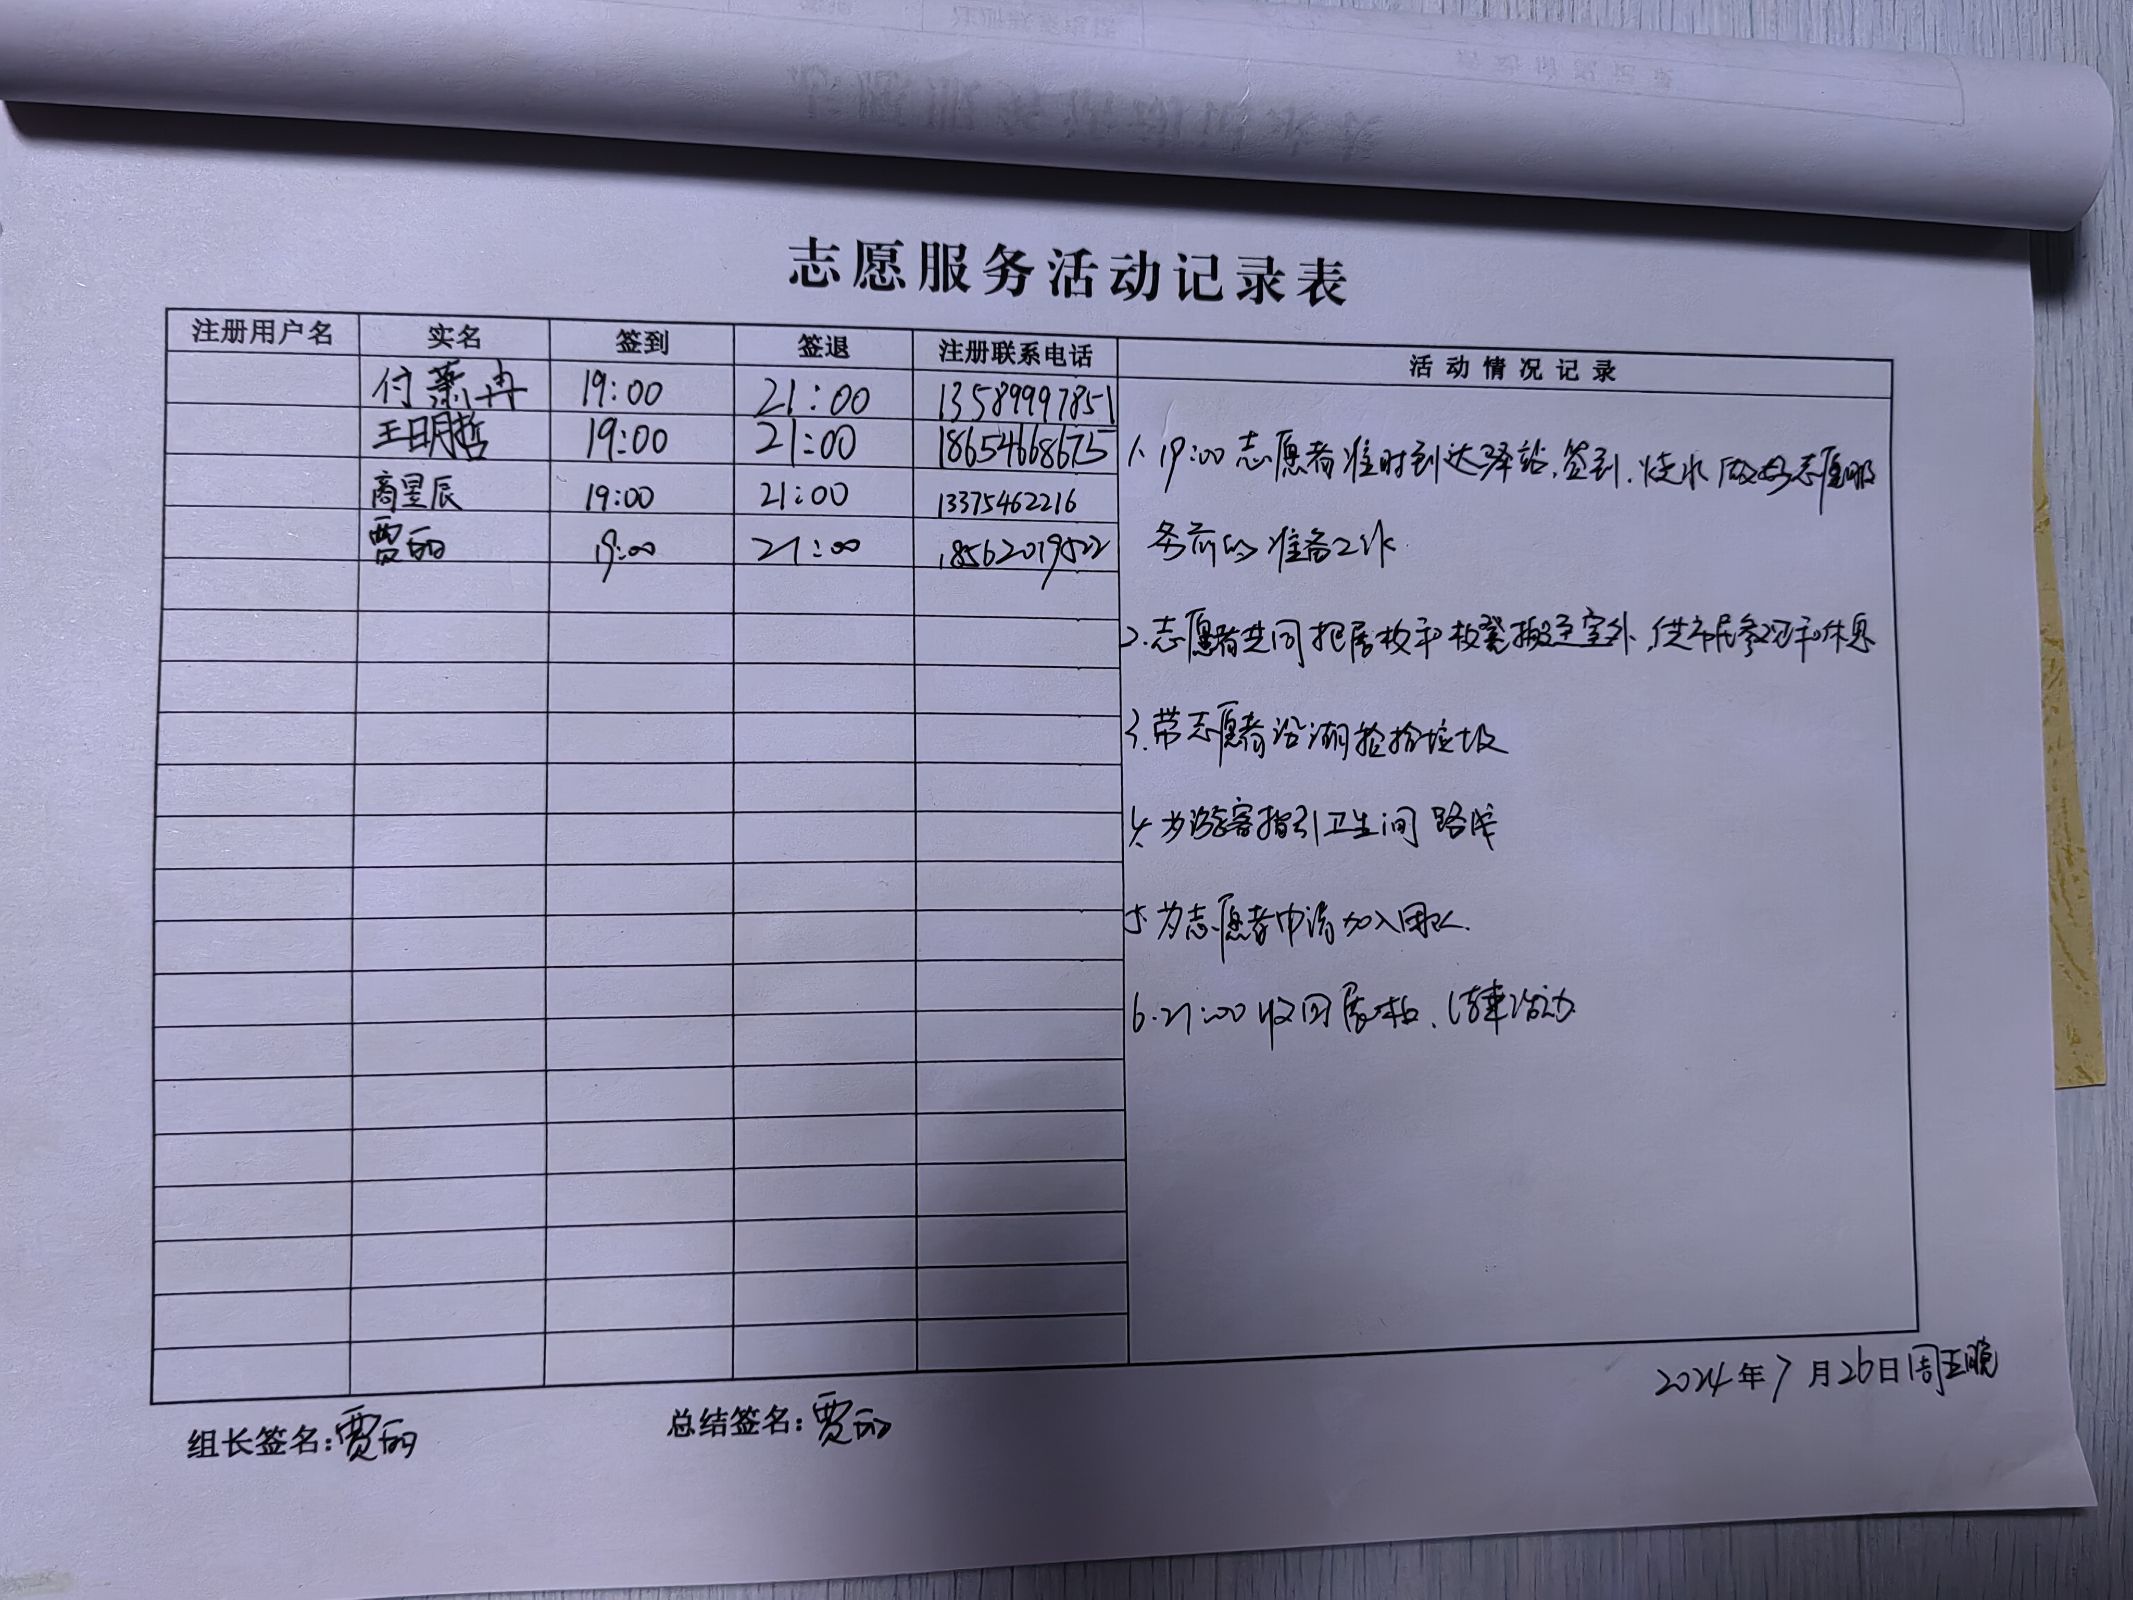 志愿服务活动记录表
注册用户名 实名 签到 签退 注册联系电话 活动情况记录
付萧冉 19:00 21:00 13589997851
王明哲 19:00 21:00 18654668675
商星辰 19:00 21:00 13375462216
贾丽 19:00 21:00 18562019522
1. 19:00志愿者准时到达驿站,签到.烧水 做好志愿服
务前的准备工作.
2.志愿者共同把展板和板凳搬至室外,供市民参观和休息
3.带志愿者沿湖捡拾垃圾
4.为游客指引卫生间路线
5.为志愿者申请加入团队.
6.21:00收回展板、结束活动
2024年7月26日周五晚
组长签名:贾丽 总结签名:贾丽